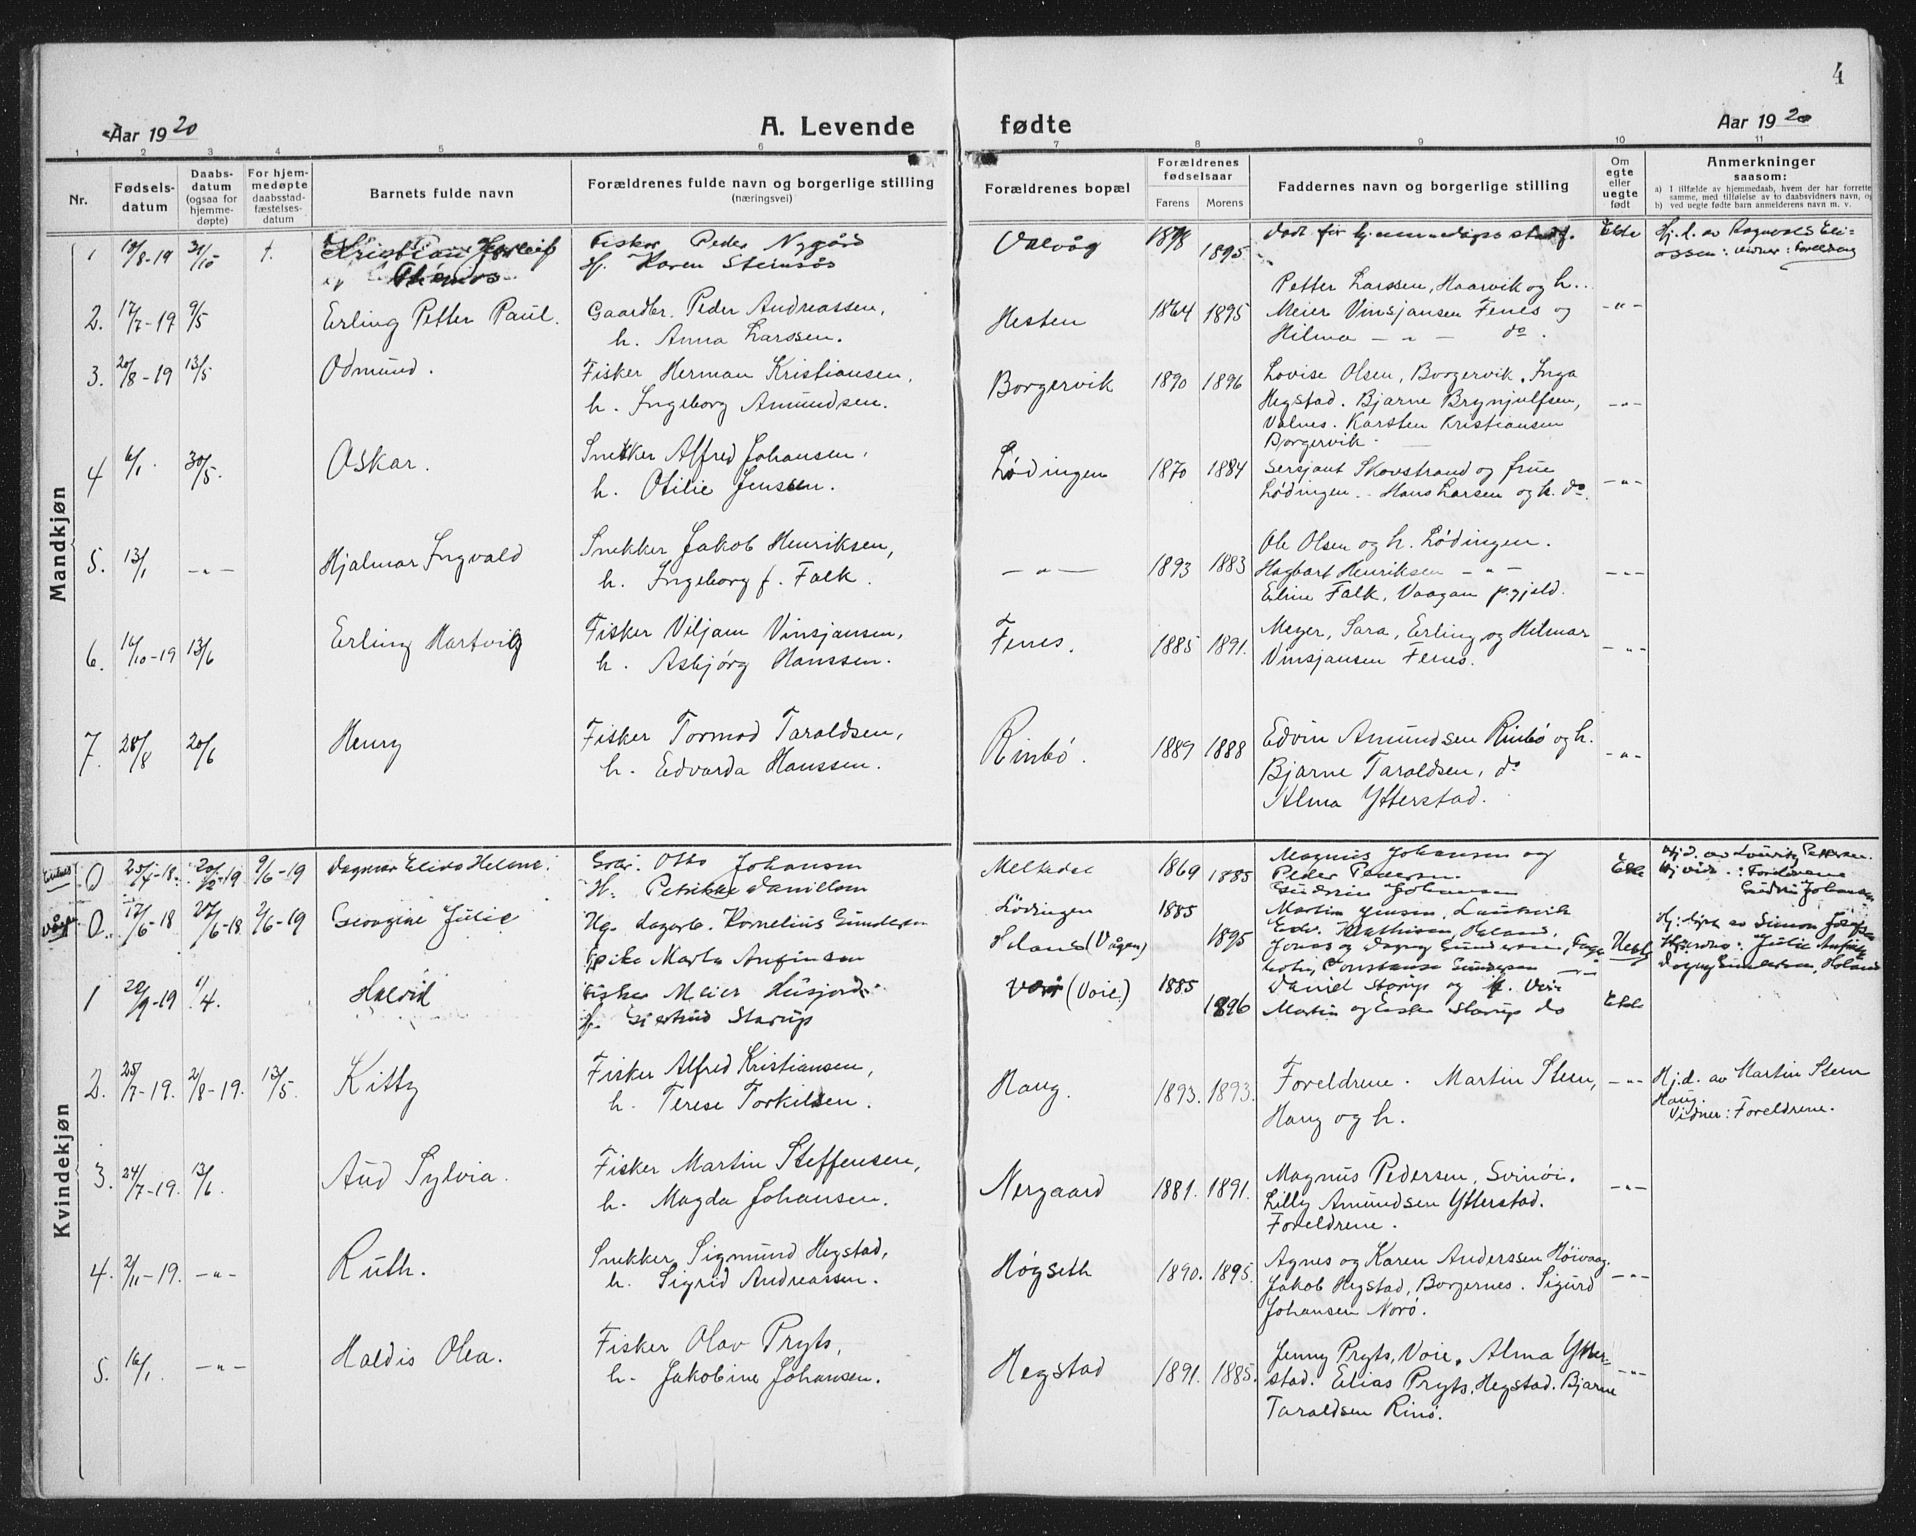 4
Aar 1920
A. Levende fødte
Aar 1920
1 2 3 4 5 6 7 8 9 10 11
Nr.
Fødselsdatum
Daabsdatum (ogsaa for hjemmedøpte)
For hjemmedøpte daabsstadfæstelsesdatum
Barnets fulde navn
Forældrenes fulde navn og borgerlige stilling (næringsvei)
Forældrenes bopæl
Forældrenes fødselsaar
Farens Morens
Faddernes navn og borgerlige stilling
Om egte eller uegte født
Anmerkninger saasom:
a) I tilfælde av hjemmedaab, hvem der har forrettet samme, med tilføielse av to daabsvidners navn, og
b) ved uegte fødte barn anmelderens navn m. v.
Mandkjøn
1 18/8-19 31/10 t. Kristian
Fisker Peder Nygård
Karen Steinsøs
Valvåg 1895
Ekte
Hj. d. av Ragnvald
vidner: Foreldrene
2. 17/7-19 9/5 Erling Petter Paul.
Gaardbr. Peder Andreassen,
h. Anna Larssen.
Hesten 1864 1895
Petter Larssen, Haarvik og h.
Meier Vinsjansen Fenes og
Hilma - " - do.
- " -
3. 20/8-19 13/5 Odmund.
Fisker Herman Kristiansen,
h. Ingeborg Amundsen.
Borgervik 1890 1896
Lovise Olsen, Borgervik. Inga
Hegstad. Bjarne Brynjulfsen,
Valnes. Karsten Kristiansen
Borgervik.
- " -
4 6/1. 30/5. Oskar.
Snekker Alfred Johansen,
h. Otilie Jenssen.
Lødingen 1870 1884
Sersjant Skovstrand og frue
Lødingen. Hans Larsen og h. do.
- " -
5. 13/1 - " - Hjalmar Ingvald
Snekker Jakob Henriksen,
h. Ingeborg f. Falk.
- " - 1893 1883
Ole Olsen og h. Lødingen.
Hagbart Henriksen - " -
Eline Falk, Vaagan p.gjeld.
- " -
6. 14/10-19 13/6 Erling Hartvig
Fisker Viljam Vinsjansen,
h. Asbjørg Hanssen.
Fenes. 1885 1891.
Meyer, Sara, Erling og Hilmar
Vinsjansen Fenes.
- " -
7. 28/8 20/6 Henry
Fisker Tormod Taraldsen,
h. Edvarda Hanssen.
Rinbø. 1889 1888
Edvin Amundsen Rinbø og h.
Bjarne Taraldsen, do
Alma Ytterstad.
- " -
Kvindekjøn
0 25/4-18. 9/6-19 Dagmar Elida Helene.
Otto Johansen
Petrikke Danillsen
1869 1885
Magnus Johansen og
Peder Pedersen
Gudrun Johansen
Ekte
Hj. d. av Lauritz Pettersen.
Foreldrene
0. 17/6-18 2/6-19 Georgine Julie
Kornelius Gundersen
Marta Anfinsen
Lødingen 1885
(Vågen) 1895
Martin Jensen,
Edv. Mathisen,
Constanse Gundersen
Uegte
1 22/9-19 Halvid
Fisker Meier Husjord
Gjertrud Starup
(Voie.) 1885 1896
Daniel Starup og
Martin og Starup do
Ekte
2. 25/7-19. 2/8-19. 13/5. Kitty
Fisker Alfred Kristiansen,
h. Terese Torkilsen.
Haug. 1893. 1893.
Foreldrene. Martin Steen,
Haug og h.
- " -
Hj.d. av Martin Steen
Haug.
Vidner: Foreldrene.
3. 24/7-19. 13/6. Aud Sylvia.
Fisker Martin Steffensen,
h. Magda Johansen.
Nergaard 1881. 1891.
Magnus Pedersen, Svinøi.
Lilly Amundsen Ytterstad.
Foreldrene.
- " -
4. 2/11-19. - " - Ruth.
Snekker Sigmund Hegstad,
h. Sigrid Andreassen.
Høgseth 1890. 1895.
Agnes og Karen Anderssen Høivaag.
Jakob Hegstad, Borgernes. Sigurd
Johansen Norø.
- " -
5. 16/1. - " - Haldis Olea.
Fisker Olav Pryts,
h. Jakobine Johansen.
Hegstad 1891. 1885.
Jenny Pryts, Voie. Alma Ytter-
stad. Elias Pryts, Hegstad. Bjarne
Taraldsen Rinø.
- " -